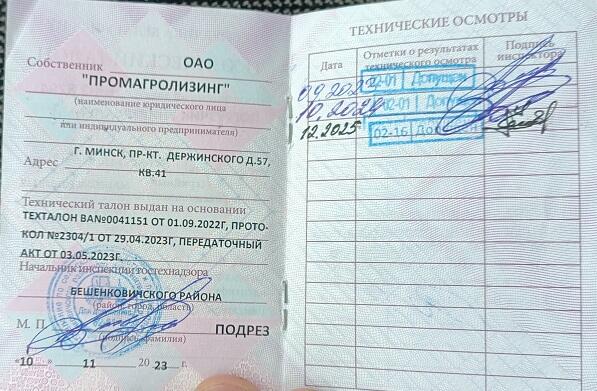 Собственник ОАО
"ПРОМАГРОЛИЗИНГ"
(наименование юридического лица
или индивидуального предпринимателя)
Адрес Г. МИНСК, ПР-КТ. ДЕРЖИНСКОГО Д.57,
КВ.41
Технический талон выдан на основании
ТЕХТАЛОН ВА№0041151 ОТ 01.09.2022Г, ПРОТО-
КОЛ №2304/1 ОТ 29.04.2023Г, ПЕРЕДАТОЧНЫЙ
АКТ ОТ 03.05.2023Г.
Начальник инспекции гостехнадзора
БЕШЕНКОВИЧСКОГО РАЙОНА
(район, город, область)
М. П. ПОДРЕЗ
(подпись, фамилия)
"10" 11 2023 г.
ТЕХНИЧЕСКИЕ ОСМОТРЫ
Дата Отметки о результатах технического осмотра Подпись инспектора
02-01 Допущен
10.2024 02-01 Допущен
12.2025 02-16 Допущен